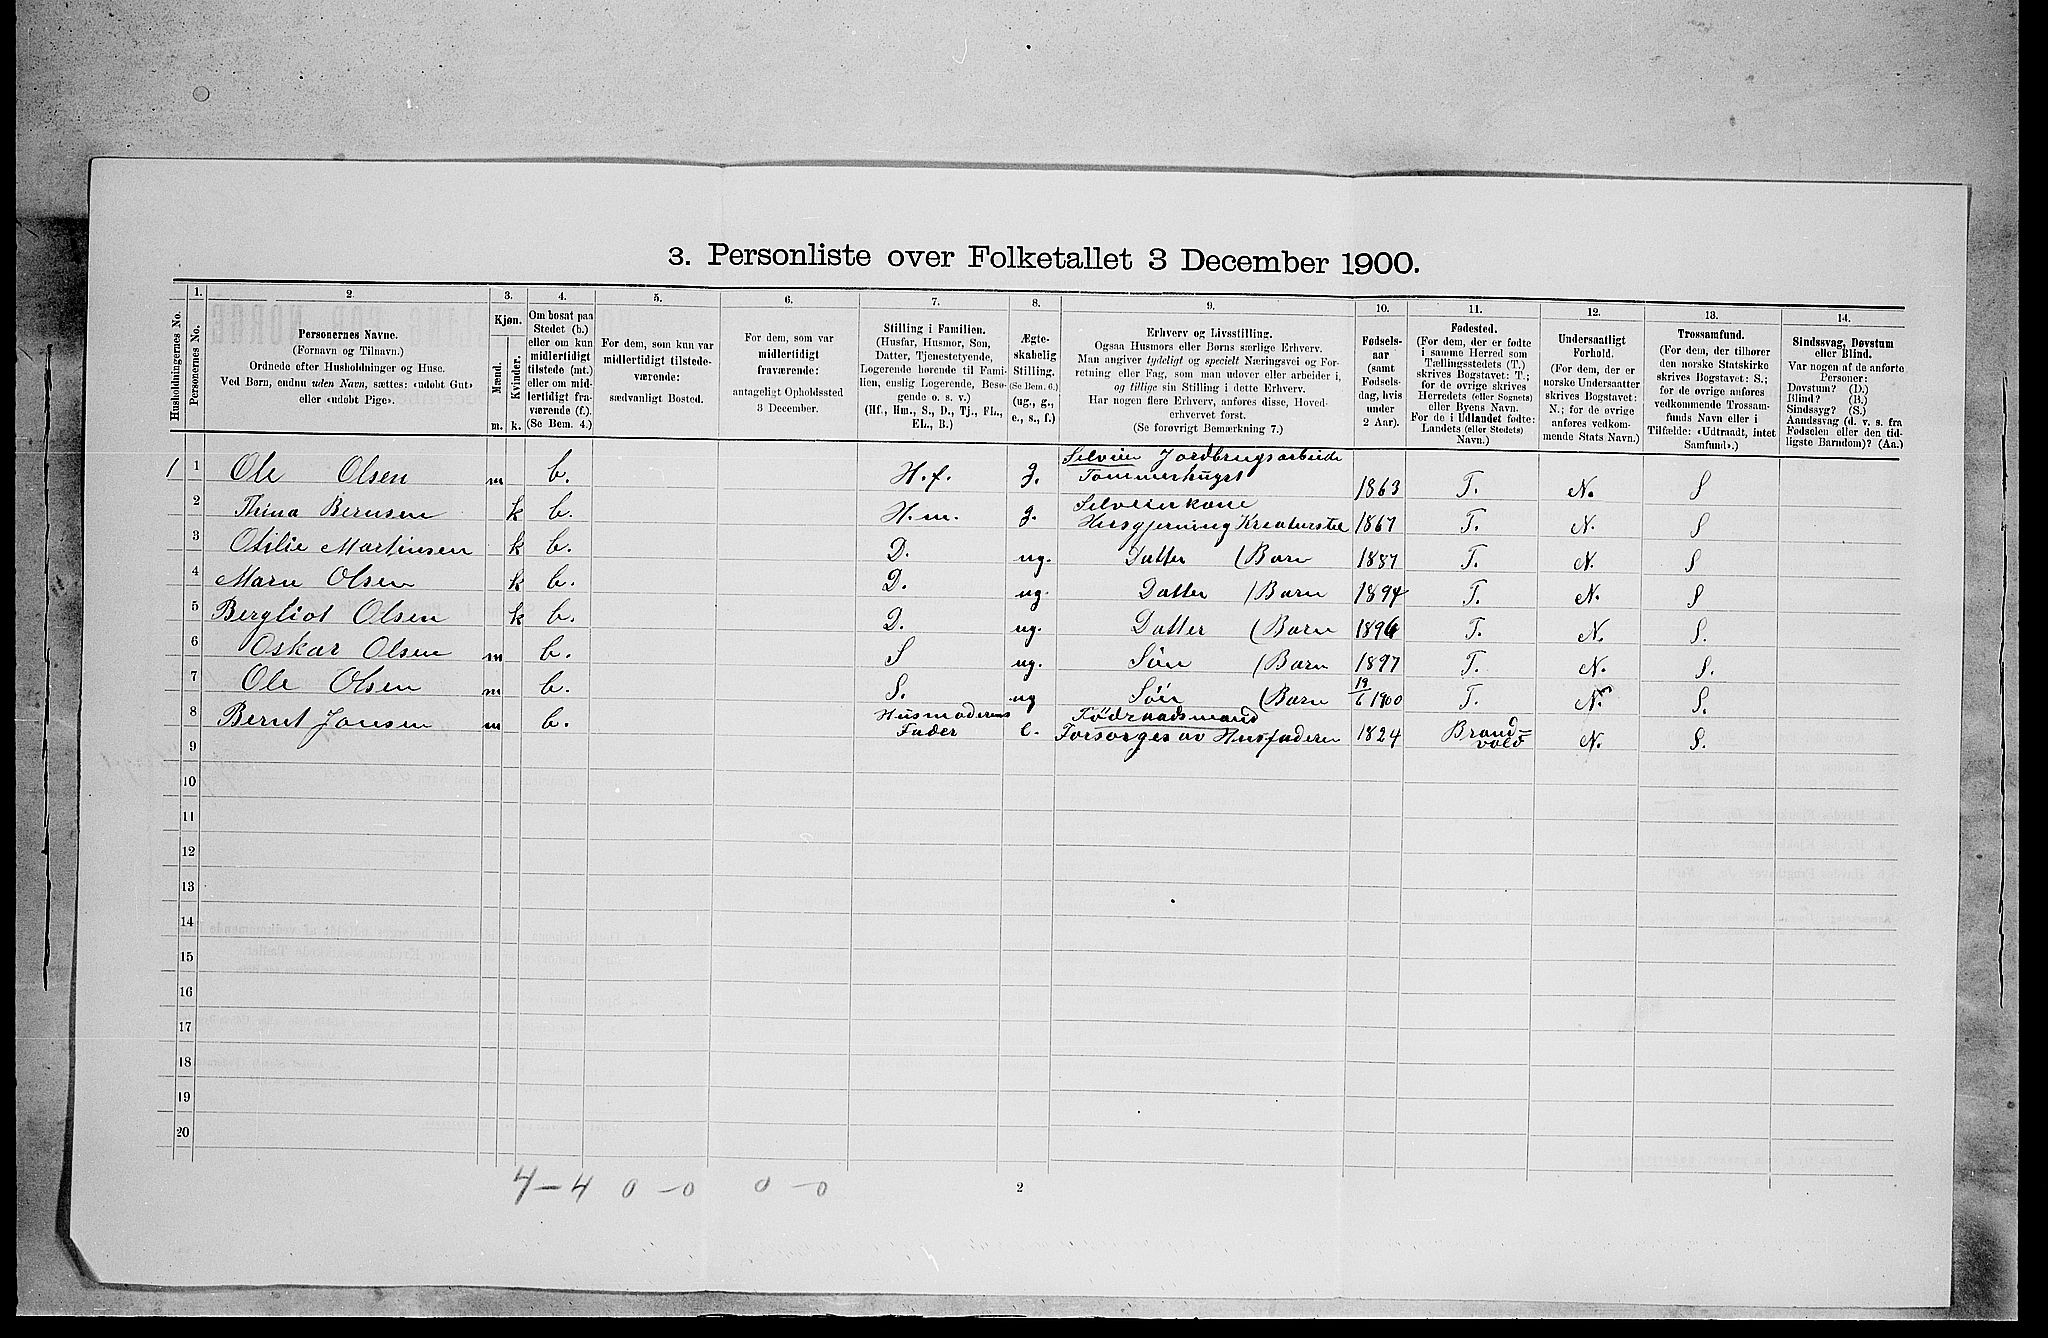 3. Personliste over Folketallet 3 December 1900.
Husholdningernes No.
1.
Personernes No.
2.
Personernes Navne.
(Fornavn og Tilnavn.)
Ordnede efter Husholdninger og Huse.
Ved Børn, endnu uden Navn, sættes: «udøbt Gut»
eller «udøbt Pige».
3.
Kjøn.
Mænd.
Kvinder.
m. k.
4.
Om bosat paa
Stedet (b.)
eller om kun
midlertidigt
tilstede (mt.)
eller om mid-
lertidigt fra-
værende (f.).
(Se Bem. 4.)
5.
For dem, som kun var
midlertidigt tilstede-
værende:
sædvanligt Bosted.
6.
For dem, som var
midlertidigt
fraværende:
antageligt Opholdssted
3 December.
7.
Stilling i Familien.
(Husfar, Husmor, Søn,
Datter, Tjenestetyende,
Logerende hørende til Fami-
lien, enslig Logerende, Besø-
gende o. s. v.)
(Hf., Hm., S., D., Tj., FL.,
EL., B.)
8.
Ægte-
skabelig
Stilling.
(Se Bem. 6.)
(ug., g.,
e., s., f.)
9.
Erhverv og Livsstilling.
Ogsaa Husmors eller Børns særlige Erhverv.
Man angiver tydeligt og specielt Næringsvei og For-
retning eller Fag, som man udøver eller arbeider i,
og tillige sin Stilling i dette Erhverv.
Har nogen flere Erhverv, anføres disse, Hoved-
erhvervet først.
(Se forøvrigt Bemærkning 7.)
10.
Fødsels-
aar
(samt
Fødsels-
dag, hvis
under
2 Aar).
11.
Fødested.
(For dem, der er fødte
i samme Herred som
Tællingsstedets (T.)
skrives Bogstavet: T.;
for de øvrige skrives
Herredets (eller Sognets)
eller Byens Navn.
For de i Udlandet fødte:
Landets (eller Stedets)
Navn.)
12.
Undersaatligt
Forhold.
(For dem, der er
norske Undersaatter
skrives Bogstavet:
N.; for de øvrige
anføres vedkom-
mende Stats Navn.)
13.
Trossamfund.
(For dem, der tilhører
den norske Statskirke
skrives Bogstavet: S.;
for de øvrige anføres
vedkommende Trossam-
funds Navn eller i
Tilfælde: «Udtraadt, intet
Samfund».)
14.
Sindssvag, Døvstum
eller Blind.
Var nogen af de anførte
Personer:
Døvstum? (D.)
Blind? (B.)
Sindssyg? (S.)
Aandssvag (d. v. s. fra
Fødselen eller den tid-
ligste Barndom)? (Aa.)
1 1 Ole Olsen m b. H.f. g. Selveier Jordbrugsarbeide
Tømmerhugst 1863 T. N. S
2 Thina Berntsen k b. H.m. g. Selveierkone
Husgjerning Kreaturstel 1867 T. N. S
3 Otilie Martinsen k b. D. ug. Datter (Barn 1887 T. N. S
4 Marie Olsen k b. D. ug. Datter (Barn 1894 T. N. S
5 Bergliot Olsen k b. D. ug. Datter (Barn 1896 T. N. S.
6 Oskar Olsen m b. S ug. Søn (Barn 1897 T. N. S.
7 Ole Olsen m b. S. ug Søn (Barn 19/6 1900 T. N. S.
8 Bernt Jonsen m b. Husmoderens
Fader e. Føderaadsmand
Forsørges av Husfaderen 1824 Brand=
vold N. S.
9
10
11
12
13
14
15
16
17
18
19
20
4 - 4 0 - 0 0 - 0
2